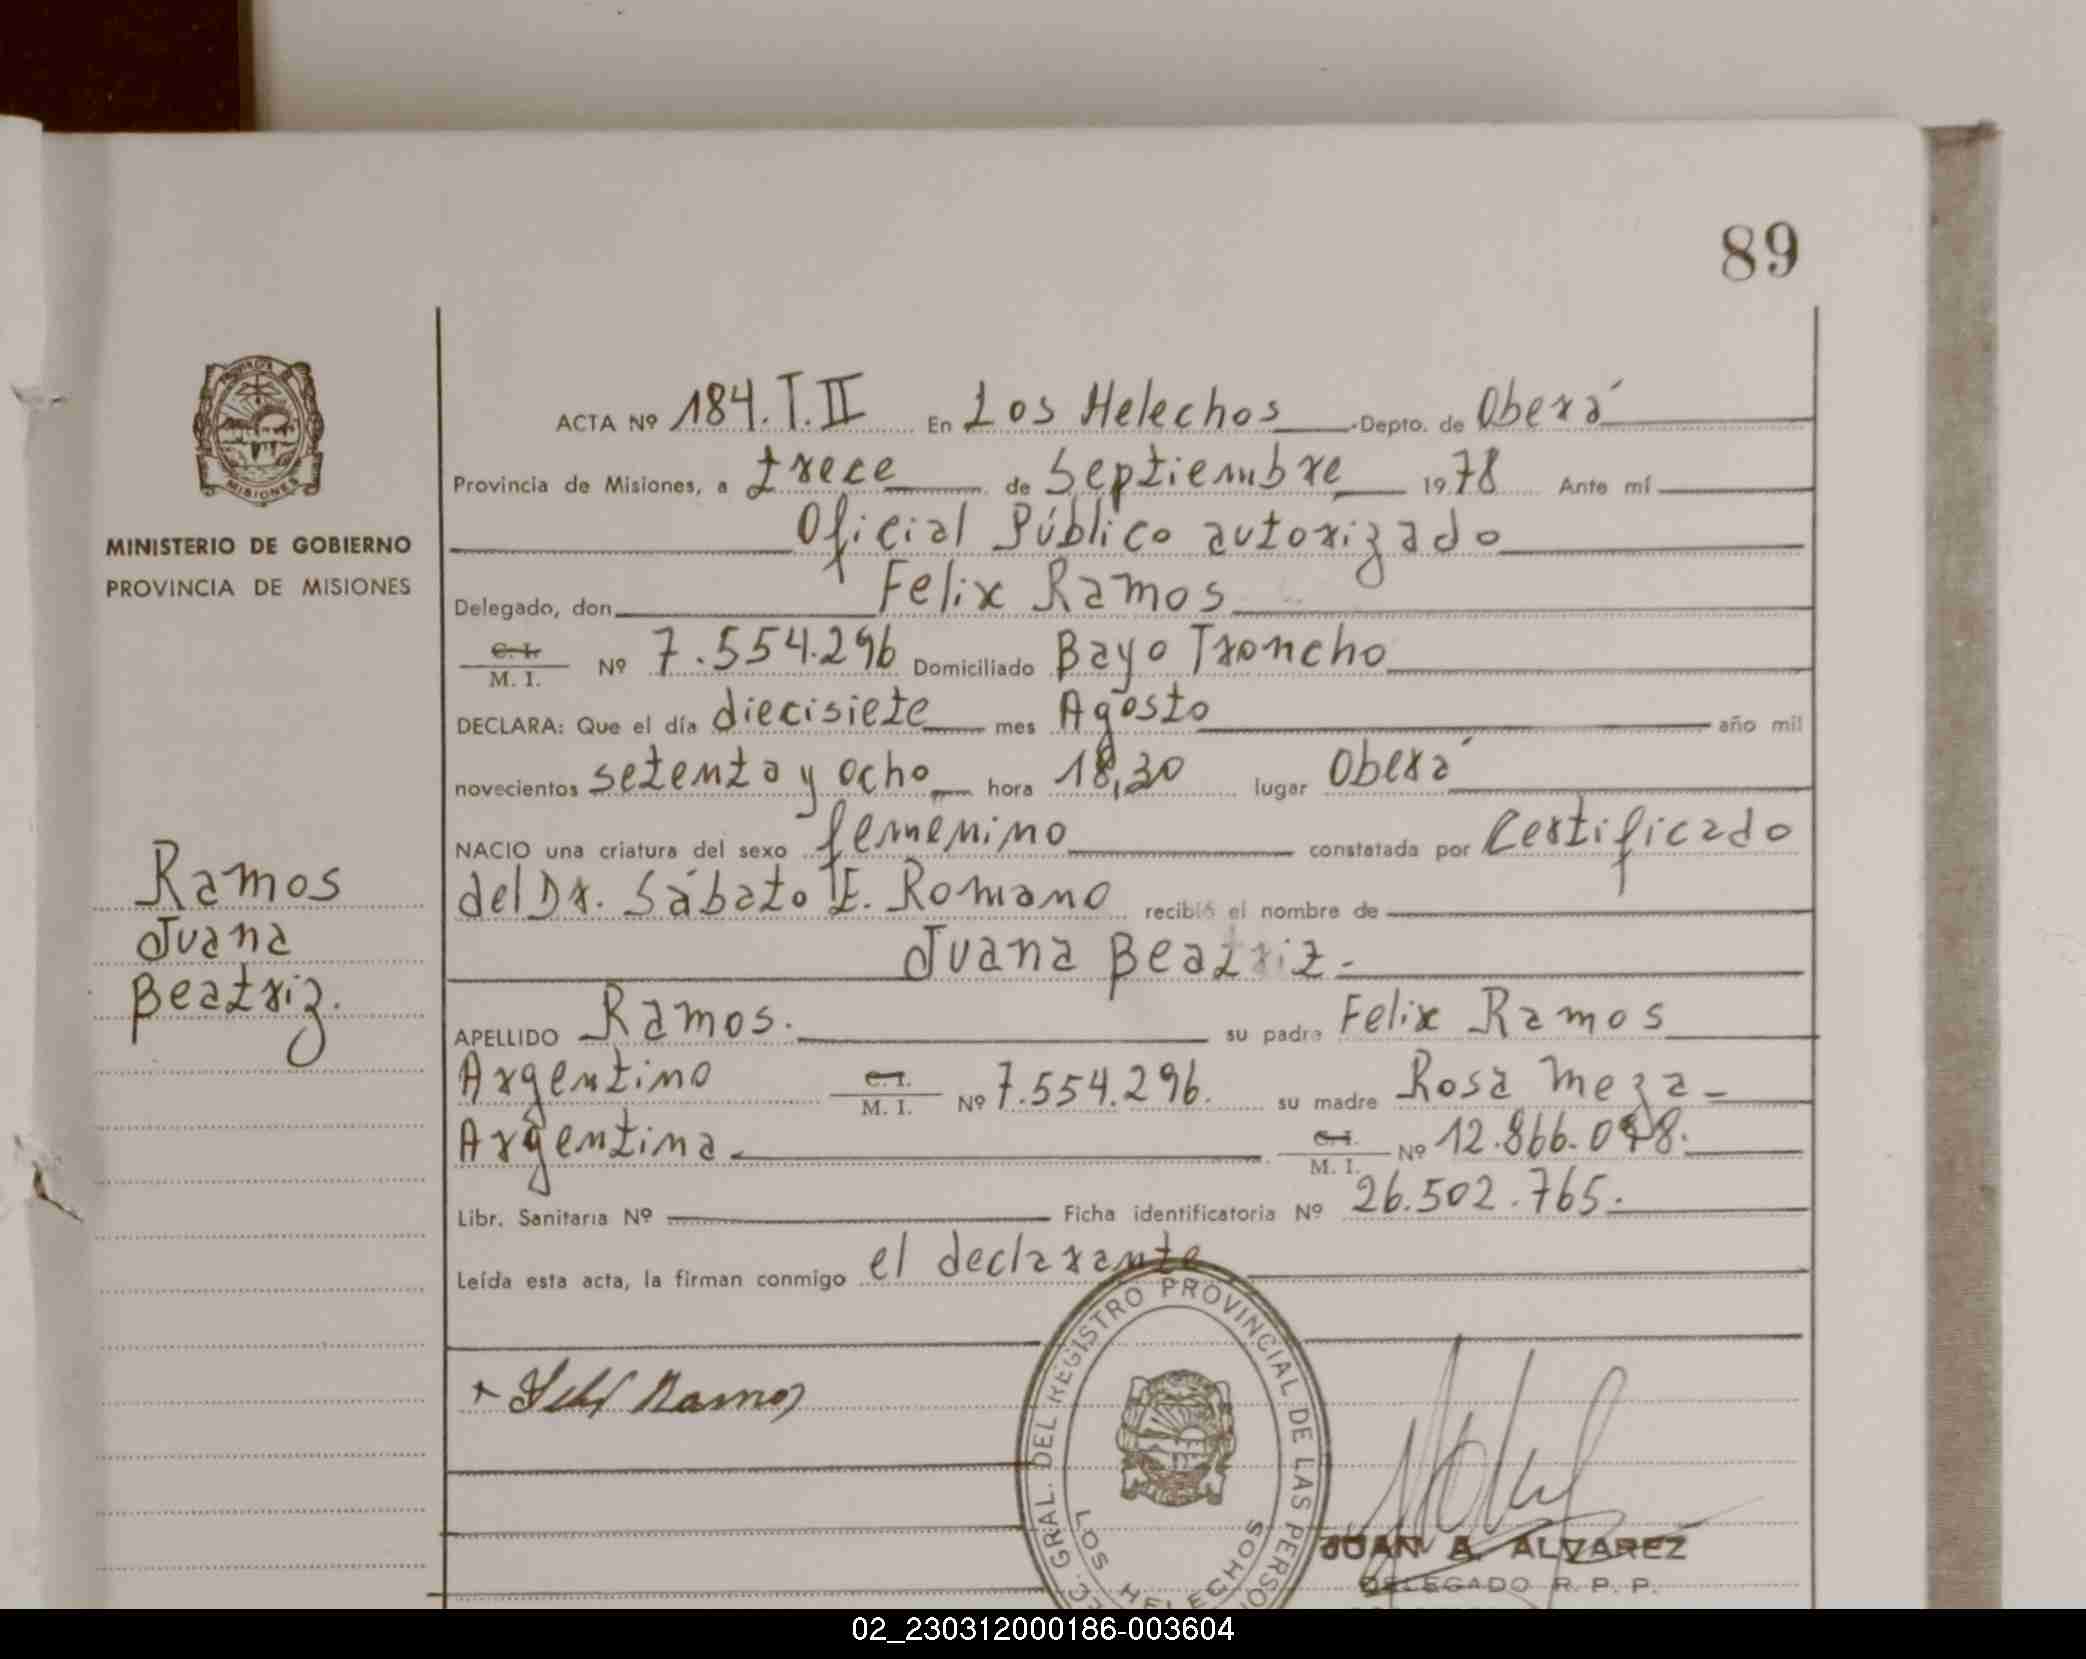 89
PROVINCIA DE
MISIONES
MINISTERIO DE GOBIERNO
PROVINCIA DE MISIONES
Ramos
Juana
Beatriz.
ACTA Nº 184.T.II En Los Helechos Depto. de Oberá
Provincia de Misiones, a trece de Septiembre 1978 Ante mí
Oficial Público autorizado
Delegado, don Felix Ramos
C. I.
M. I. Nº 7.554.296 Domiciliado Bayo Troncho
DECLARA: Que el día diecisiete mes Agosto año mil
novecientos setenta y ocho hora 18,30 lugar Oberá
NACIO una criatura del sexo femenino constatada por Certificado
del Dr. Sábato E. Romano recibió el nombre de
Juana Beatriz.-
APELLIDO Ramos. su padre Felix Ramos
Argentino C. I.
M. I. Nº 7.554.296. su madre Rosa Meza-
Argentina C. I.
M. I. Nº 12.866.
Libr. Sanitaria Nº Ficha identificatoria Nº 26.502.765.
Leída esta acta, la firman conmigo el declarante,
GRAL. DEL REGISTRO PROVINCIAL DE LAS PERSO
LOS HELECHOS
Ramos
JUAN A. ALVAREZ
DELEGADO R. P. P.
02_230312000186-003604